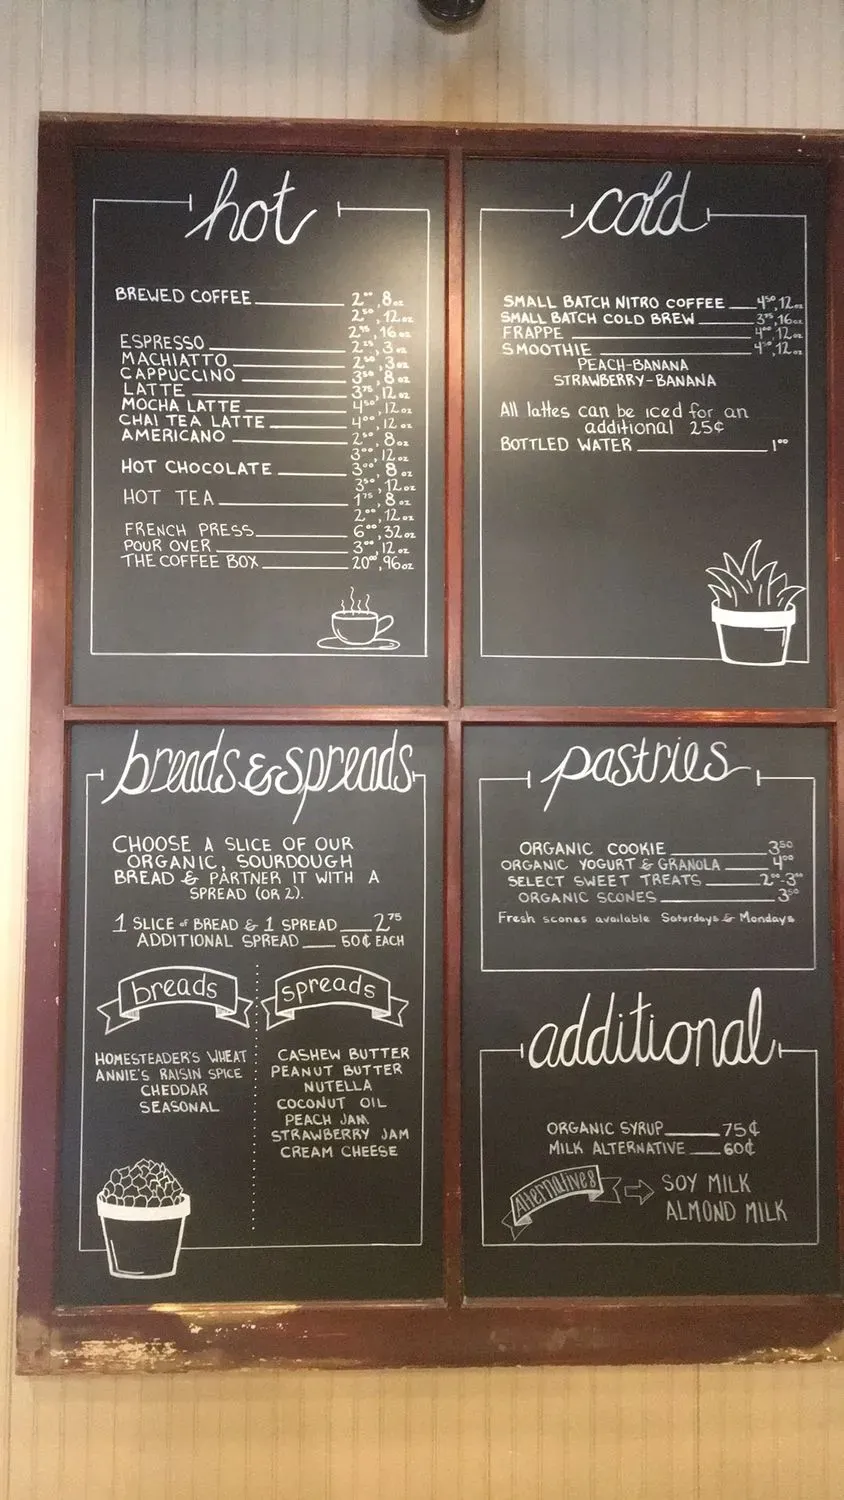 hot
BREWED COFFEE 2⁰⁰, 8oz
2⁵⁰, 12oz
2⁹⁵, 16oz
ESPRESSO 2²⁵, 3oz
MACHIATTO 2⁵⁰, 3oz
CAPPUCCINO 3⁵⁰, 8oz
LATTE 3⁷⁵, 12oz
MOCHA LATTE 4⁵⁰, 12oz
CHAI TEA LATTE 4⁰⁰, 12oz
AMERICANO 2⁵⁰, 8oz
3⁰⁰, 12oz
HOT CHOCOLATE 3⁰⁰, 8oz
3⁵⁰, 12oz
HOT TEA 1⁷⁵, 8oz
2⁰⁰, 12oz
FRENCH PRESS 6⁰⁰, 32oz
POUR OVER 3⁰⁰, 12oz
THE COFFEE BOX 20⁰⁰, 96oz
cold
SMALL BATCH NITRO COFFEE 4⁵⁰, 12oz
SMALL BATCH COLD BREW 3⁷⁵, 16oz
FRAPPE 4⁰⁰, 12oz
SMOOTHIE 12oz
PEACH-BANANA
STRAWBERRY-BANANA
All lattes can be iced for an
additional 25¢
BOTTLED WATER 1⁰⁰
breads & spreads
CHOOSE A SLICE OF OUR
ORGANIC, SOURDOUGH
BREAD & PARTNER IT WITH A
SPREAD (OR 2).
1 SLICE of BREAD & 1 SPREAD 2⁷⁵
ADDITIONAL SPREAD 50¢ EACH
breads
HOMESTEADER'S WHEAT
ANNIE'S RAISIN SPICE
CHEDDAR
SEASONAL
spreads
CASHEW BUTTER
PEANUT BUTTER
NUTELLA
COCONUT OIL
PEACH JAM
STRAWBERRY JAM
CREAM CHEESE
pastries
ORGANIC COOKIE 3⁵⁰
ORGANIC YOGURT & GRANOLA 4⁰⁰
SELECT SWEET TREATS 2⁰⁰-3⁰⁰
ORGANIC SCONES 3⁵⁰
Fresh scones available Saturdays & Mondays
additional
ORGANIC SYRUP 75¢
MILK ALTERNATIVE 60¢
Alternatives
SOY MILK
ALMOND MILK